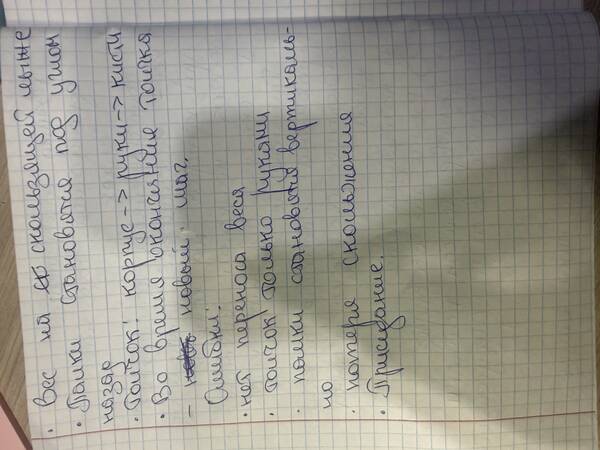 • Вес на скользящей лыже
• Палки становятся под углом
назад
• Толчок: корпус –> руки –> кисти
• Во время окончание толчка
– новый шаг.
Ошибки:
• нет переноса веса
• толчок только руками
• палки становятся вертикаль-
но
• потеря скольжения
• Приседание.